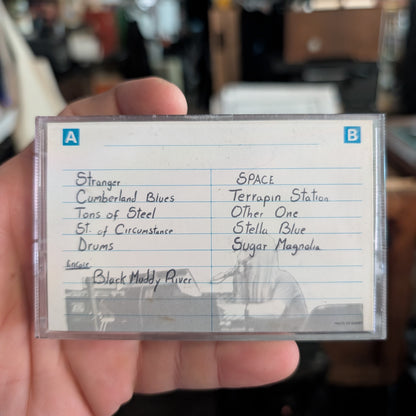 A
B
Stranger
Cumberland Blues
Tons of Steel
St. of Circumstance
Drums
Encore
Black Muddy River
SPACE
Terrapin Station
Other One
Stella Blue
Sugar Magnolia